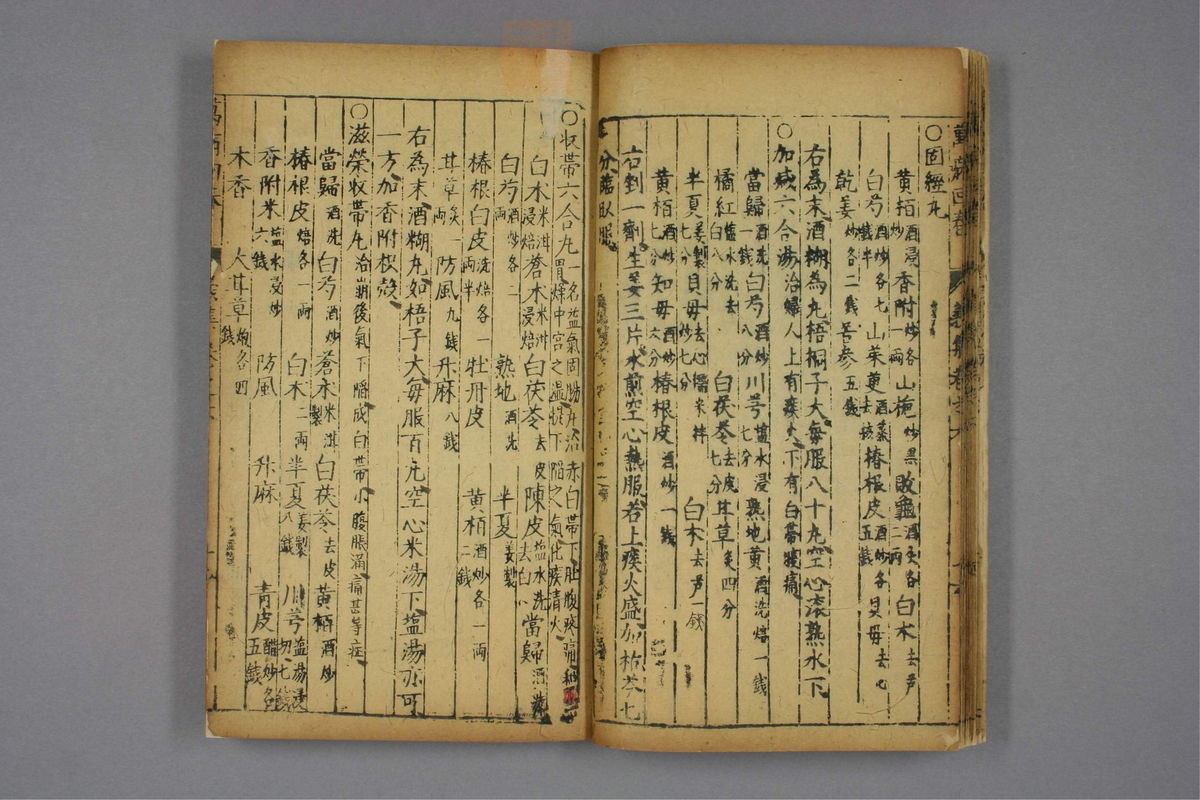 ○固經丸
黃栢酒浸炒 香附炒各一兩 山梔炒黑 敗龜酒炙各二兩 白朮去芦
白芍酒炒各七錢半 山茱萸酒蒸去核 椿根皮酒炒各五錢 貝母去心
乾姜炒各二錢 苦参五錢
右為末酒糊為丸梧桐子大每服八十丸空心滚熟水下
○加减六合湯治婦人上有痰火下有白帶腹痛
當歸酒洗一錢 白芍酒炒八分 川芎塩水浸七分 熟地黃酒洗焙一錢
橘紅塩水洗去白八分 白茯苓去皮七分 甘草炙四分
半夏姜製七分 貝母去心糯米拌炒七分 白朮去芦一錢
黃栢酒炒七分 知母酒炒六分 椿根皮酒炒一錢
右剉一劑生姜三片水煎空心熱服若上痰火盛加枯芩七
分臨臥服
○收帶六合丸一名益氣固腸丸治赤白帶下肚腹疼痛
白朮米泔浸焙 蒼朮米泔浸焙 白茯苓去皮 陳皮塩水洗去白 當歸酒洗
白芍酒炒各二兩 熟地酒洗 半夏姜製
椿根白皮洗焙各一兩半 牡丹皮 黃栢酒炒各一兩二錢
甘草炙一兩 防風九錢 升麻八錢
右為末酒糊丸如梧子大每服百丸空心米湯下塩湯亦可
一方加香附枳殼
○滋榮收帶丸治崩後氣下䐜成白帶小腹脹滿痛甚等症
當歸酒洗 白芍酒炒 蒼朮米泔製 白茯苓去皮 黃栢酒炒
椿根皮焙各一兩 白朮二兩 半夏姜製八錢 川芎塩湯浸切七錢
香附米塩水浸炒六錢 防風 升麻 青皮醋炒各五錢
木香 大甘草煨各四錢